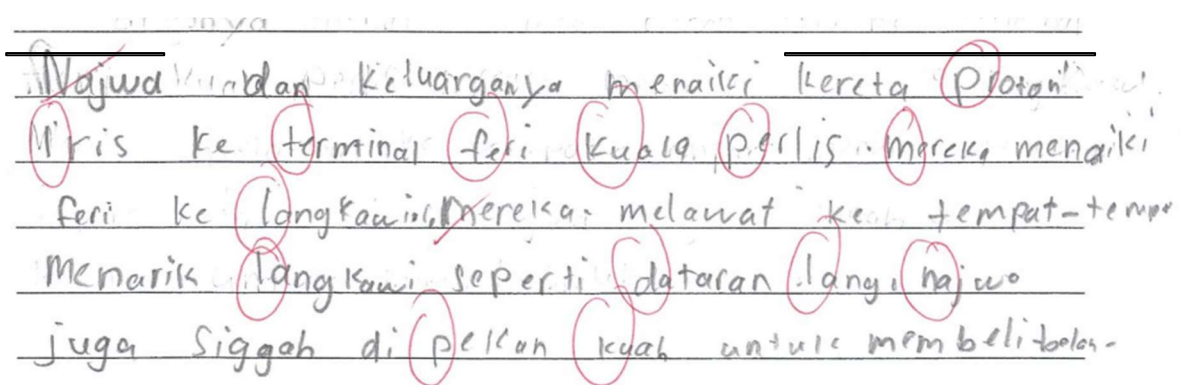 Najwa dan keluarganya menaiki kereta proton
Iris ke terminal feri kuala perlis. mereka menaiki
feri ke langkawi. Mereka melawat ke tempat-temp
menarik langkawi seperti dataran lang. najwa
juga siggah di pekan kuah untuk membeli belah-